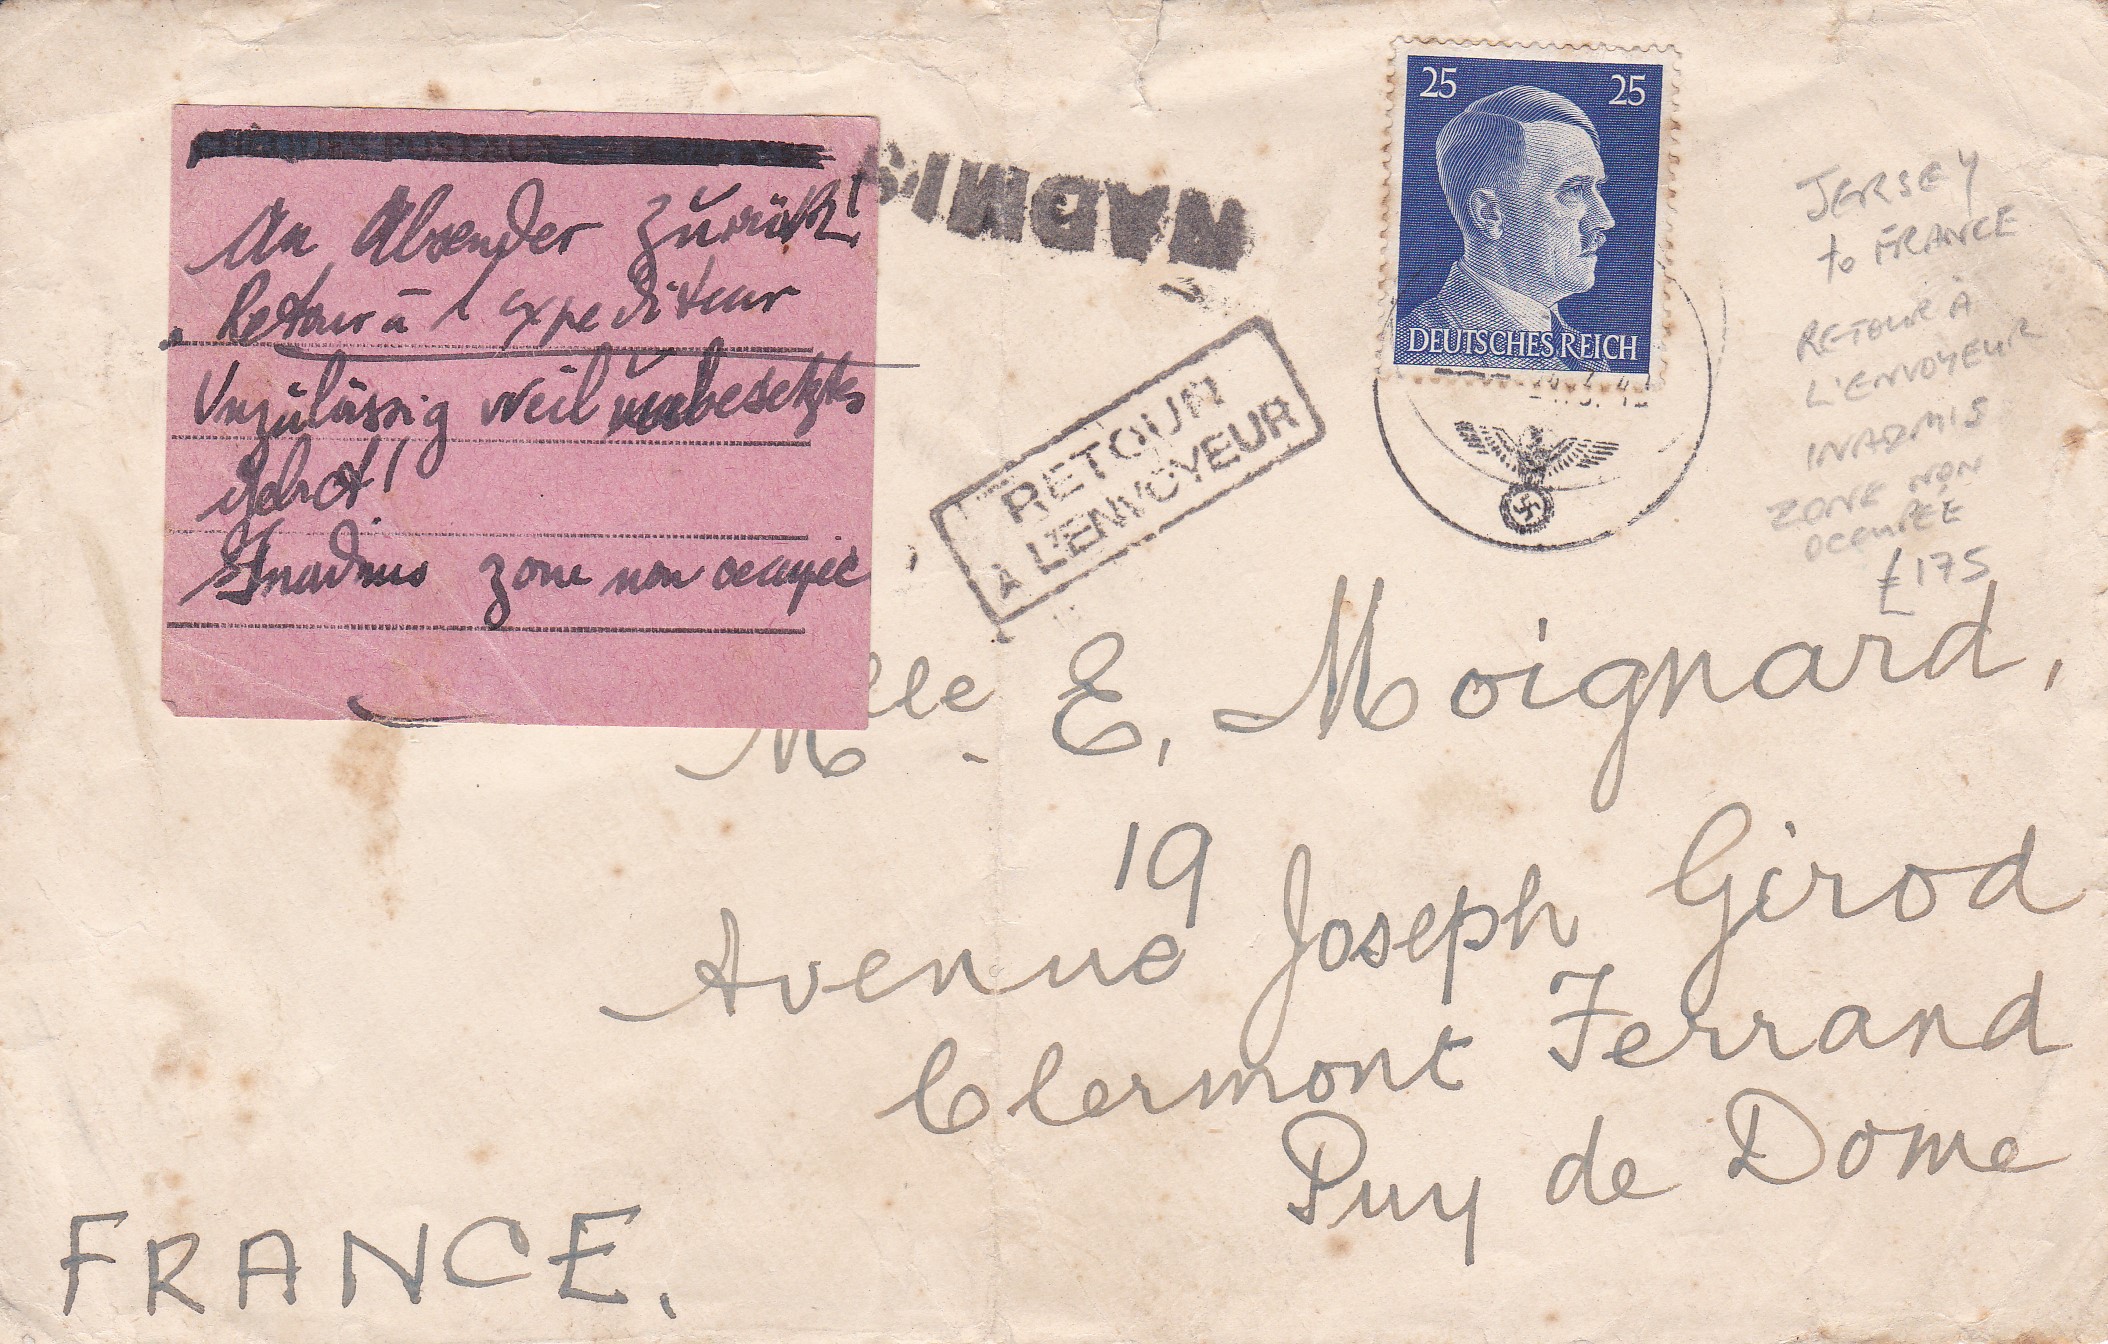 An Absender zurück!
Retour à l'expediteur
Unzulässig weil unbesetztes
Gebiet!
Inadmis zone non occupée
INADMIS
RETOUR
À L'ENVOYEUR
25 25
DEUTSCHES REICH
JERSEY
to FRANCE
RETOUR À
L'ENVOYEUR
INADMIS
ZONE NON
OCCUPÉE
£175
Mlle E. Moignard,
19
Avenue Joseph Girod
Clermont Ferrand
Puy de Dome
FRANCE.